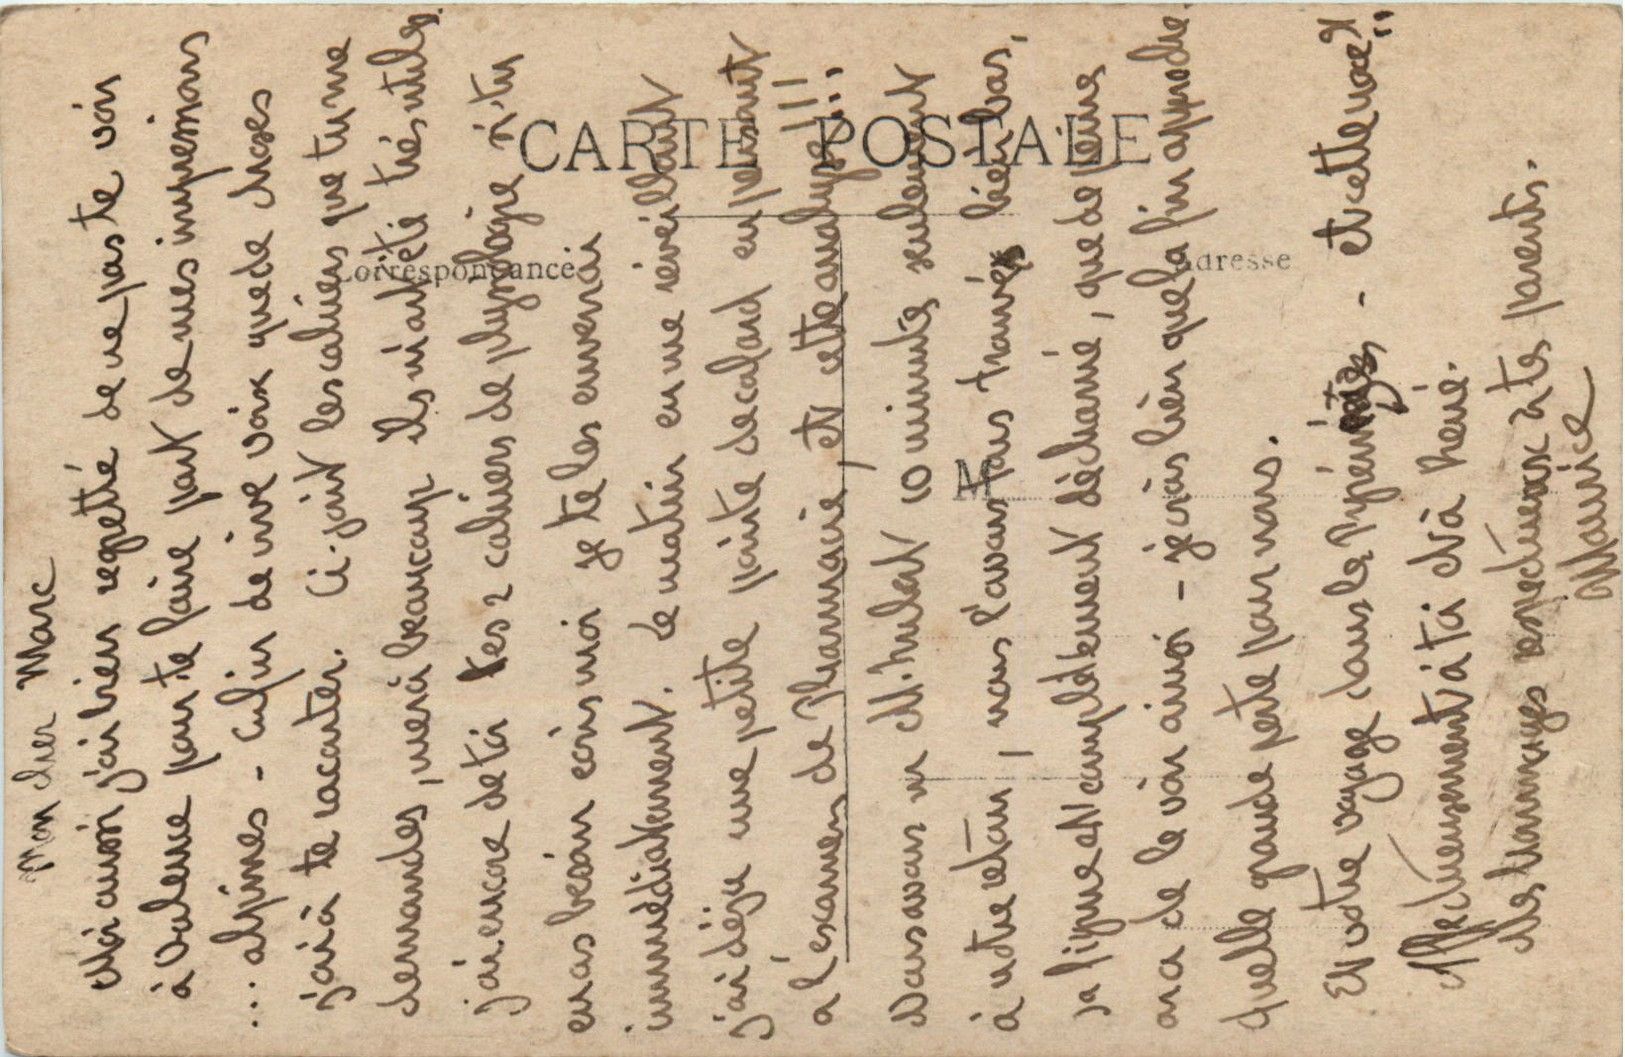 CARTE POSTALE
Correspondance
Adresse
M
Mon cher Marc
Moi aussi j'ai bien regretté de ne pas te voir
à Valence pour te faire part de mes impressions
... alpines - enfin de vive voix que de choses
j'ai à te raconter. Ci-joint les cahiers que tu me
demandes, merci beaucoup ils m'ont été très utiles.
j'ai encore de toi tes 2 cahiers de physiologie si tu
en as besoin écris moi je te les enverrai
immédiatement. Le matin en me réveillant
j'ai déjà une petite pointe de cafard en pensant
à l'examen de Pharmacie, et cette analyse!!!
Nous avons vu M. hulet 10 minutes seulement
à notre retour, nous l'avons pas trouvé bien bas,
sa figure est complètement décharné, que de peine
on a de le voir ainsi - je crois bien que la fin approche.
quelle grande perte pour nous.
Et votre voyage dans les Pyrénées - et cette noce?!!
Affectueusement à toi et à hené.
Mes hommages respectueux à tes parents.
Maurice